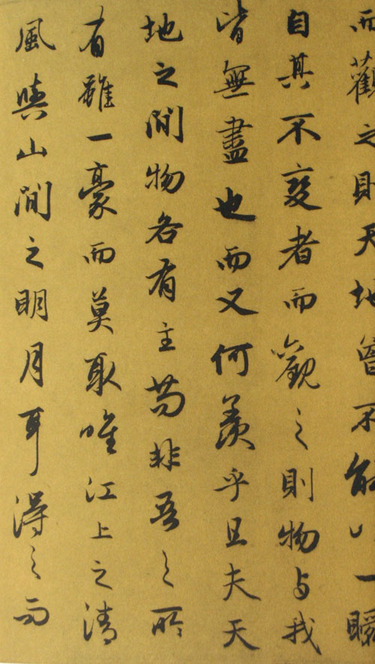 而觀之則天地曾不能以一瞬
自其不變者而觀之則物與我
皆無盡也而又何羨乎且夫天
地之間物各有主苟非吾之所
有雖一豪而莫取唯江上之清
風與山間之明月耳得之而